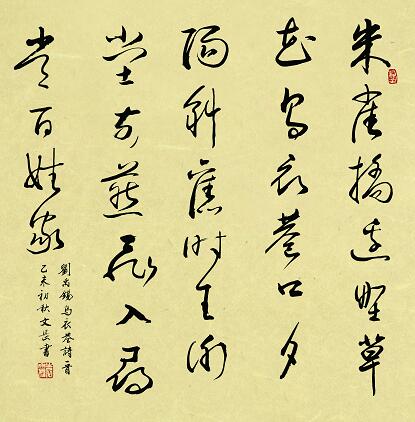 朱雀橋邊野草
花烏衣巷口夕
陽斜舊時王謝
堂前燕飛入尋
常百姓家
劉禹錫烏衣巷詩一首
乙未初秋文長書